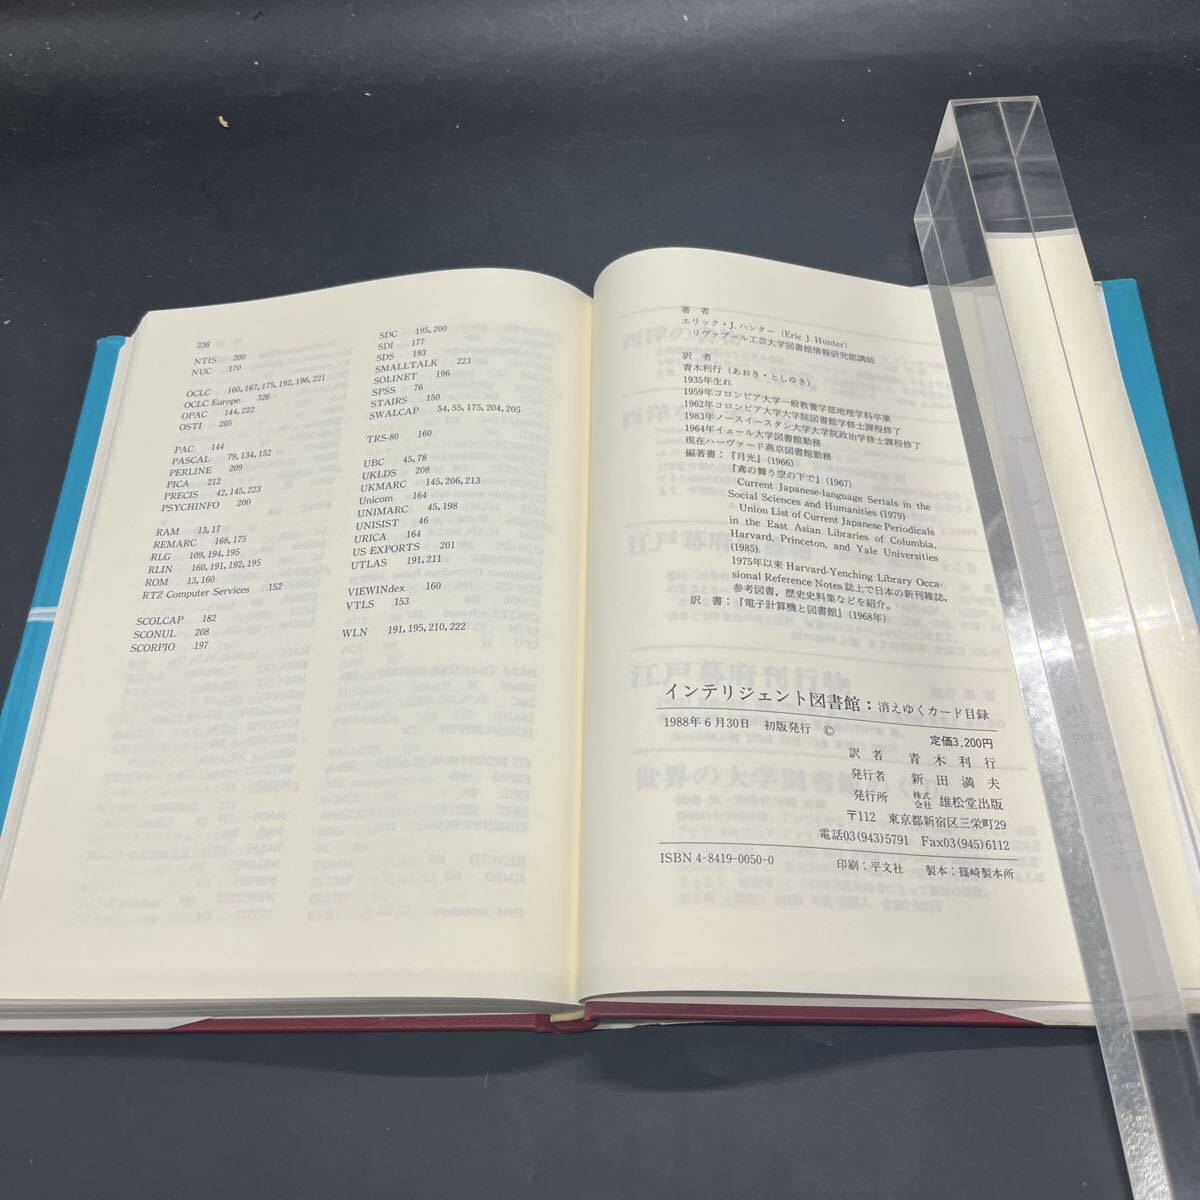 236
NTIS 200
NUC 170
OCLC 160, 167, 175, 192, 196, 221
OCLC Europe 326
OPAC 144, 222
OSTI 205
PAC 144
PASCAL 79, 134, 152
PERLINE 209
PICA 212
PRECIS 42, 145, 223
PSYCHINFO 200
RAM 13, 17
REMARC 168, 175
RLG 109, 194, 195
RLIN 160, 191, 192, 195
ROM 13, 160
RTZ Computer Services 152
SCOLCAP 182
SCONUL 208
SCORPIO 197
SDC 195, 200
SDI 177
SDS 193
SMALLTALK 223
SOLINET 196
SPSS 76
STAIRS 150
SWALCAP 54, 55, 175, 204, 205
TRS-80 160
UBC 45, 78
UKLDS 208
UKMARC 145, 206, 213
Unicom 164
UNIMARC 45, 198
UNISIST 46
URICA 164
US EXPORTS 201
UTLAS 191, 211
VIEWINdex 160
VTLS 153
WLN 191, 195, 210, 222
著者
エリック・J. ハンター (Eric J. Hunter)
リヴァプール工芸大学図書館情報研究部講師
訳者
青木利行(あおき・としゆき)
1935年生れ
1959年コロンビア大学一般教養学部地理学科卒業
1962年コロンビア大学大学院図書館学修士課程修了
1983年ノースイースタン大学大学院政治学修士課程修了
1964年イェール大学図書館勤務
現在ハーヴァード燕京図書館勤務
編著書:『月光』(1966)
『鳶の舞う空の下で』(1967)
Current Japanese-language Serials in the
Social Sciences and Humanities (1979)
Union List of Current Japanese Periodicals
in the East Asian Libraries of Columbia,
Harvard, Princeton, and Yale Universities
(1985).
1975年以来 Harvard-Yenching Library Occa-
sional Reference Notes 誌上で日本の新刊雑誌,
参考図書,歴史史料集などを紹介。
訳書:『電子計算機と図書館』(1968年)
インテリジェント図書館:消えゆくカード目録
1988年6月30日 初版発行 ©
定価3,200円
訳者 青木利行
発行者 新田満夫
発行所 株式会社 雄松堂出版
〒112 東京都新宿区三栄町29
電話03(943)5791 Fax03(945)6112
ISBN 4-8419-0050-0 印刷:平文社 製本:篠崎製本所